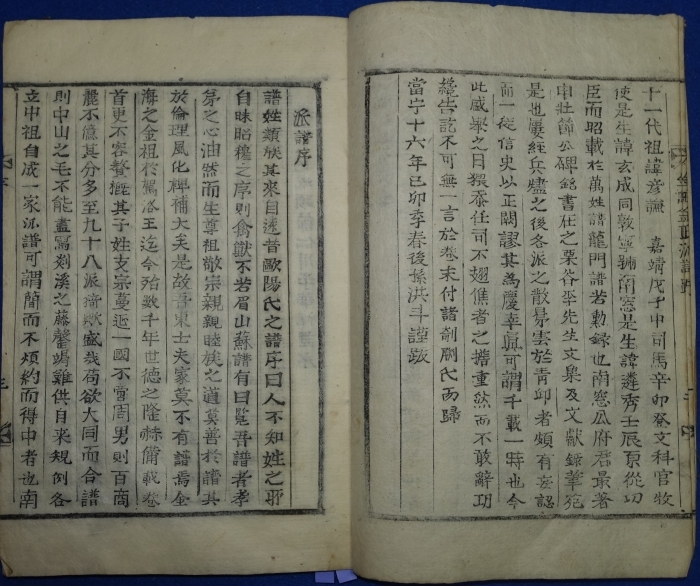 十一代祖諱彦謙 嘉靖戊子中司馬辛卯登文科官牧
使是生諱玄成同敦寧號南窓是生諱遴秀壬辰原從功
臣而昭載於萬姓譜龍門譜若勲録也南窓瓜府君最著
申壯節公碑銘書在之栗谷李先生文集及文獻録華宛
是也屢經兵燹之後各派之散昜雲於青邱者頗有妄認
而一從信史以正闕謬其為慶幸眞可謂千載一時也今
此咸擧之日猥忝任司不翅僬者之擔重然而不敢辭功
繼告訖不可無一言於卷末付諸剞劂氏而歸
當宁十六年己卯季春後孫洪斗謹跋
派譜序
譜姓類族其來自遠昔歐陽氏之譜序曰人不知姓之所
自昧昭穆之序則禽獸不若眉山蘇譜有曰覽吾譜者孝
悌之心油然而生尊祖敬宗親親睦族之道莫善於譜其
於倫理風化裨補大夫是故吾東士夫家莫不有譜焉金
海之金祖於駕洛王迄今殆數千年世德之隆赫備載卷
首更不容贅㨾其子姓支宗蔓延一國不啻周男則百商
麗不億其分多至九十八派猗歟盛哉苟欲大同而合譜
則中山之毛不能盡寫剡溪之藤罄竭難供自來規例各
立中祖自成一家派譜可謂簡而不煩約而得中者也南